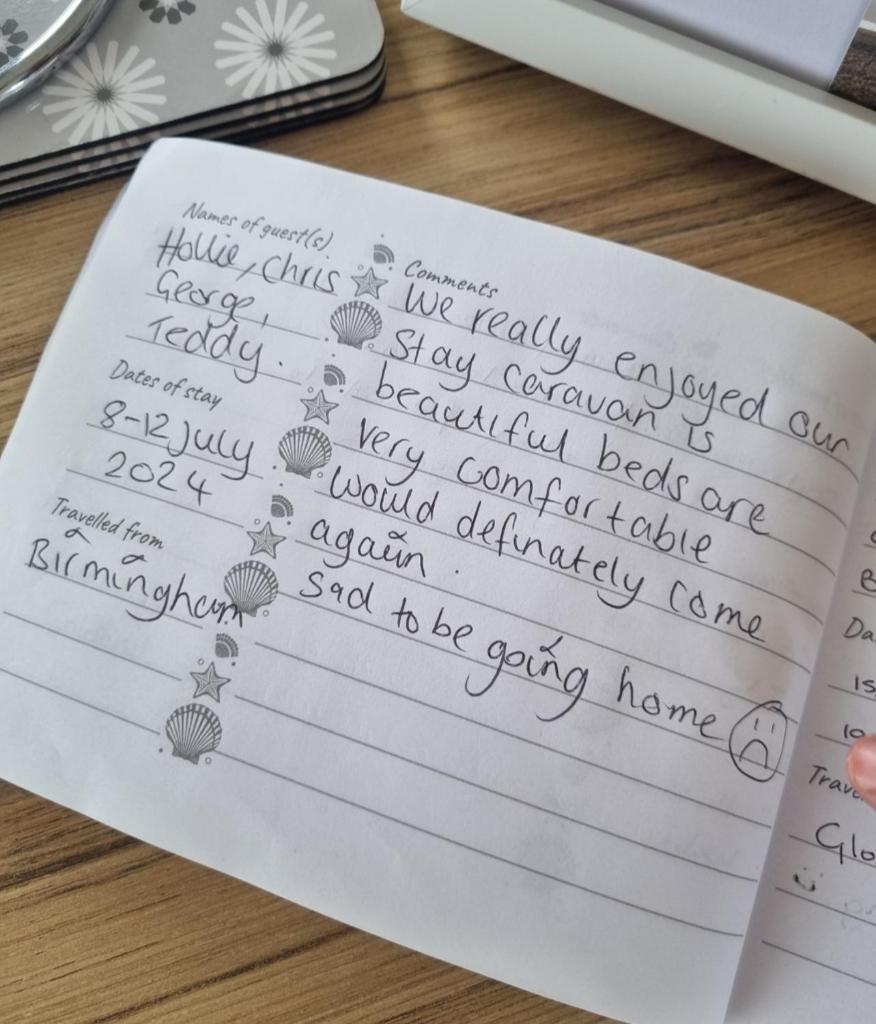 Names of guest(s)
Hollie, Chris
George,
Teddy.
Dates of stay
8-12 July
2024
Travelled from
Birmingham
Comments
We really enjoyed our
Stay caravan is
beautiful beds are
very comfortable
would definately come
again.
Sad to be going home
Da
15
10
Trave
Glo